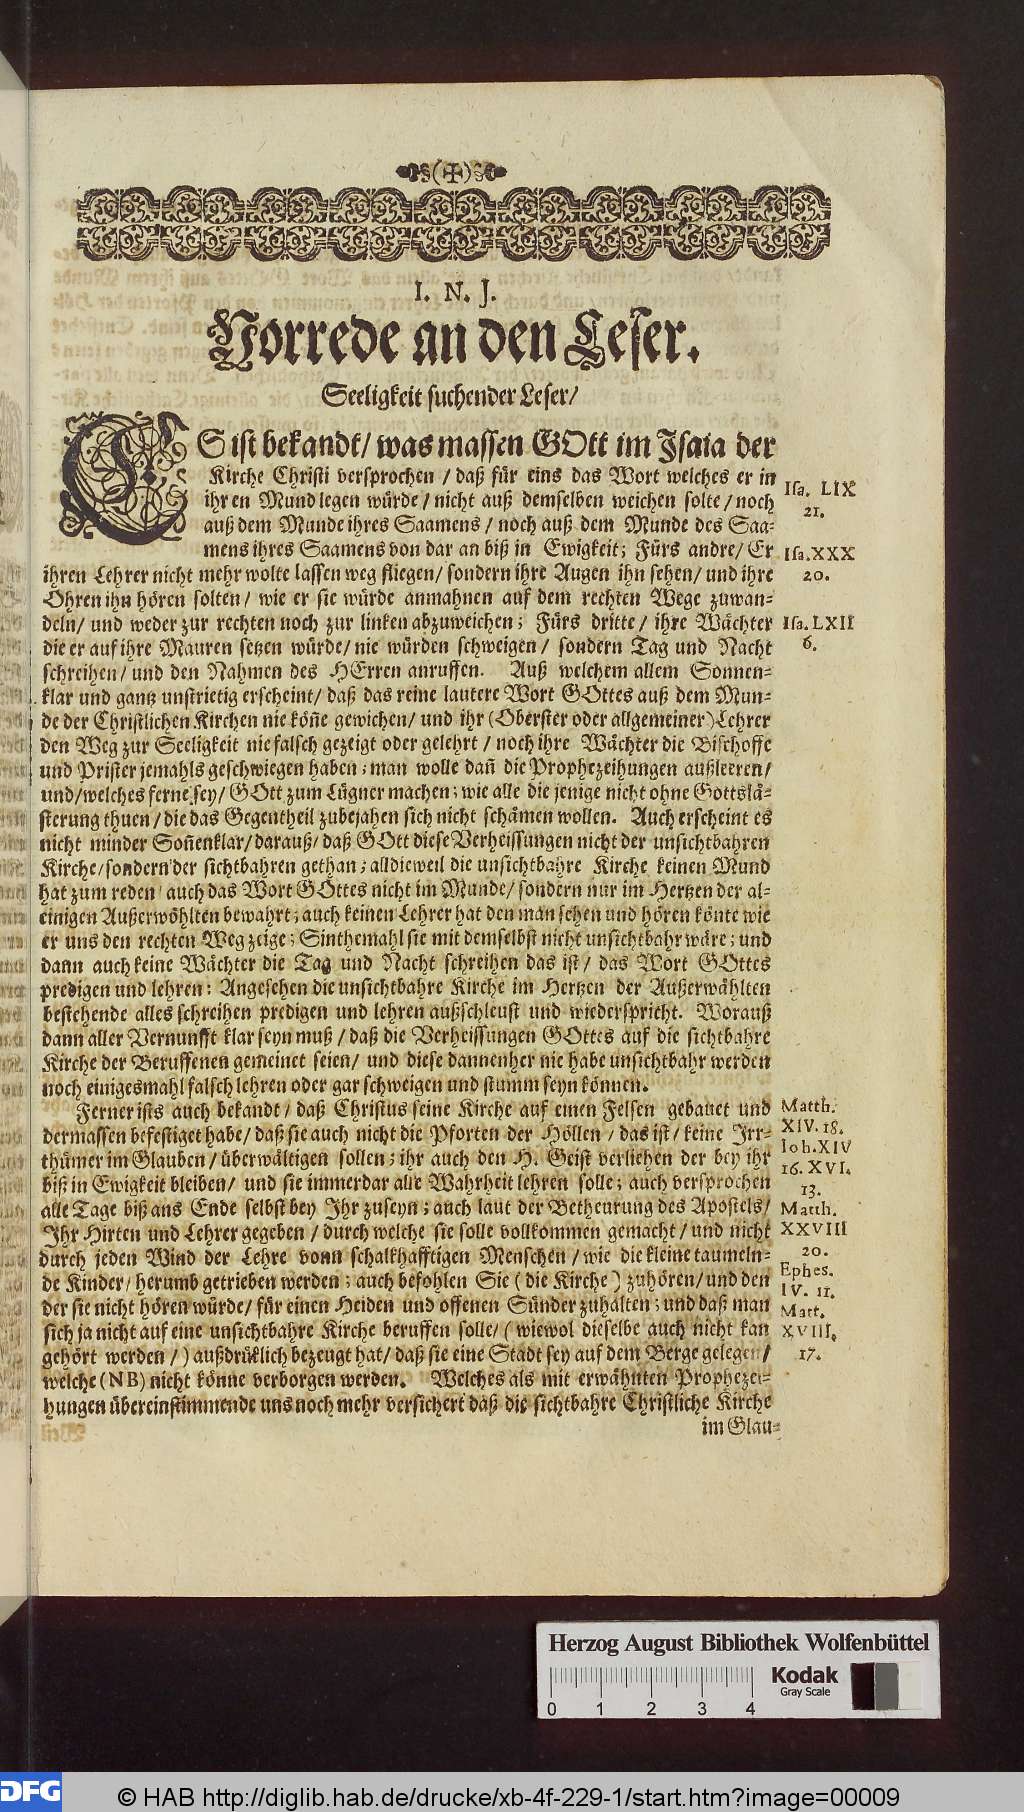 I. N. J.
Vorrede an den Leser.
Seeligkeit suchender Leser/
ES ist bekandt/ was massen GOtt im Isaia der
Kirche Christi versprochen / daß für eins das Wort welches er in
ihren Mund legen würde / nicht auß demselben weichen solte / noch
auß dem Munde ihres Saamens / noch auß dem Munde des Saa-
mens ihres Saamens von dar an biß in Ewigkeit; Fürs andre/ Er
ihren Lehrer nicht mehr wolte lassen weg fliegen/ sondern ihre Augen ihn sehen/ und ihre
Ohren ihn hören solten/ wie er sie würde anmahnen auf dem rechten Wege zuwan-
deln/ und weder zur rechten noch zur linken abzuweichen; Fürs dritte/ ihre Wächter
die er auf ihre Mauren setzen würde/ nie würden schweigen/ sondern Tag und Nacht
schreihen/ und den Nahmen des HErren anruffen. Auß welchem allem Sonnen-
klar und gantz unstrietig erscheint/ daß das reine lautere Wort GOttes auß dem Mun-
de der Christlichen Kirchen nie köñe gewichen/ und ihr (Oberster oder allgemeiner) Lehrer
den Weg zur Seeligkeit nie falsch gezeigt oder gelehrt / noch ihre Wächter die Bischoffe
und Prister jemahls geschwiegen haben; man wolle dañ die Prophezeihungen außleeren/
und/welches ferne sey/ GOtt zum Lügner machen; wie alle die jenige nicht ohne Gottslä-
sterung thuen/ die das Gegentheil zubejahen sich nicht schämen wollen. Auch erscheint es
nicht minder Soñenklar/ darauß/ daß GOtt diese Verheissungen nicht der unsichtbahren
Kirche/sondern der sichtbahren gethan; alldieweil die unsichtbahre Kirche keinen Mund
hat zum reden/ auch das Wort GOttes nicht im Munde/ sondern nur im Hertzen der al-
einigen Außerwöhlten bewahrt; auch keinen Lehrer hat den man sehen und hören könte wie
er uns den rechten Weg zeige; Sinthemahl sie mit demselbst nicht unsichtbahr wäre; und
dann auch keine Wächter die Tag und Nacht schreihen das ist/ das Wort GOttes
predigen und lehren: Angesehen die unsichtbahre Kirche im Hertzen der Außerwählten
bestehende alles schreihen predigen und lehren außschleust und wiederspricht. Worauß
dann aller Vernunfft klar seyn muß / daß die Verheissungen GOttes auf die sichtbahre
Kirche der Beruffenen gemeinet seien/ und diese dannenher nie habe unsichtbahr werden
noch einigesmahl falsch lehren oder gar schweigen und stumm seyn können.
Ferner ists auch bekandt/ daß Christus seine Kirche auf einen Felsen gebauet und
dermassen befestiget habe/ daß sie auch nicht die Pforten der Höllen / das ist/ keine Irr-
thümer im Glauben/ überwältigen sollen; ihr auch den H. Geist verliehen der bey ihr
biß in Ewigkeit bleiben/ und sie immerdar alle Wahrheit lehren solle; auch versprochen
alle Tage biß ans Ende selbst bey Ihr zuseyn; auch laut der Betheurung des Apostels/
Ihr Hirten und Lehrer gegeben / durch welche sie solle vollkommen gemacht/ und nicht
durch jeden Wind der Lehre vonn schalkhafftigen Menschen/ wie die kleine taumeln-
de Kinder/ herumb getrieben werden; auch befohlen Sie (die Kirche) zuhören/ und den
der sie nicht hören würde/ für einen Heiden und offenen Sünder zuhalten; und daß man
sich ja nicht auf eine unsichtbahre Kirche beruffen solle/ (wiewol dieselbe auch nicht kan
gehört werden/) außdrüklich bezeugt hat/ daß sie eine Stadt sey auf dem Berge gelegen/
welche (NB) nicht könne verborgen werden. Welches als mit erwähnten Prophezei-
hungen übereinstimmende uns noch mehr versichert daß die sichtbahre Christliche Kirche
im Glau-
Isa. LIX
21.
Isa. XXX
20.
Isa. LXII
6.
Matth.
XIV. 18.
Ioh. XIV
16. XVI.
13.
Matth.
XXVIII
20.
Ephes.
IV. 11.
Matt.
XVIII.
17.
Herzog August Bibliothek Wolfenbüttel
Kodak
Gray Scale
0 1 2 3 4
DFG
© HAB http://diglib.hab.de/drucke/xb-4f-229-1/start.htm?image=00009